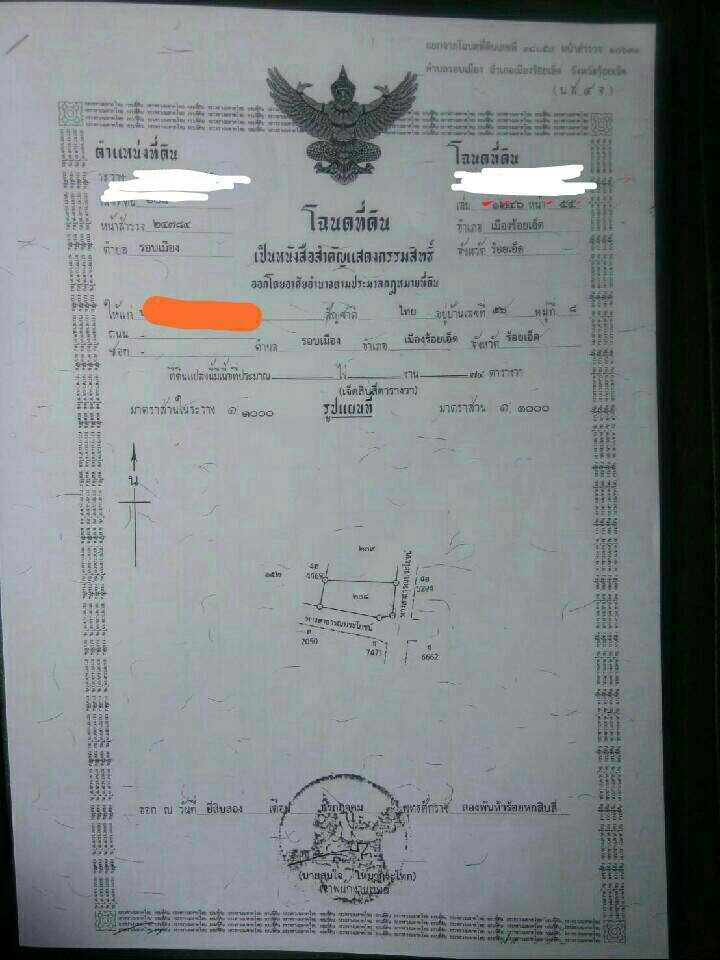 แยกจากโฉนดที่ดินเลขที่ หน้าสำรวจ
ตำบลรอบเมือง อำเภอเมืองร้อยเอ็ด จังหวัดร้อยเอ็ด
(น.ส. ๔ จ)
ตำแหน่งที่ดิน
โฉนดที่ดิน
ระวาง
เล่ม ๑๒๔๖ หน้า ๕๕
หน้าสำรวจ ๒๔๗๘๔
โฉนดที่ดิน
อำเภอ เมืองร้อยเอ็ด
ตำบล รอบเมือง
เป็นหนังสือสำคัญแสดงกรรมสิทธิ์
จังหวัด ร้อยเอ็ด
ออกโดยอาศัยอำนาจตามประมวลกฎหมายที่ดิน
ให้แก่ สัญชาติ ไทย อยู่บ้านเลขที่ หมู่ที่ ๘
ถนน -
ซอย - ตำบล รอบเมือง อำเภอ เมืองร้อยเอ็ด จังหวัด ร้อยเอ็ด
ที่ดินแปลงนี้มีเนื้อที่ประมาณ - ไร่ - งาน ๗๔ ตารางวา
(เจ็ดสิบสี่ตารางวา)
มาตราส่วนในระวาง ๑:๑๐๐๐
รูปแผนที่
มาตราส่วน ๑:๑๐๐๐
น
๒๐๙
๑๕๒
๒๐๘
ทางสาธารณประโยชน์
ทางสาธารณประโยชน์
7471
6662
ออก ณ วันที่ ยี่สิบสอง เดือน พุทธศักราช สองพันห้าร้อยหกสิบสี่
เจ้าพนักงานที่ดิน